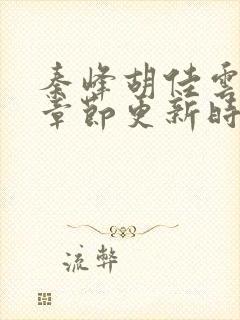 秦峰胡佳雲
章節更新時
流弊